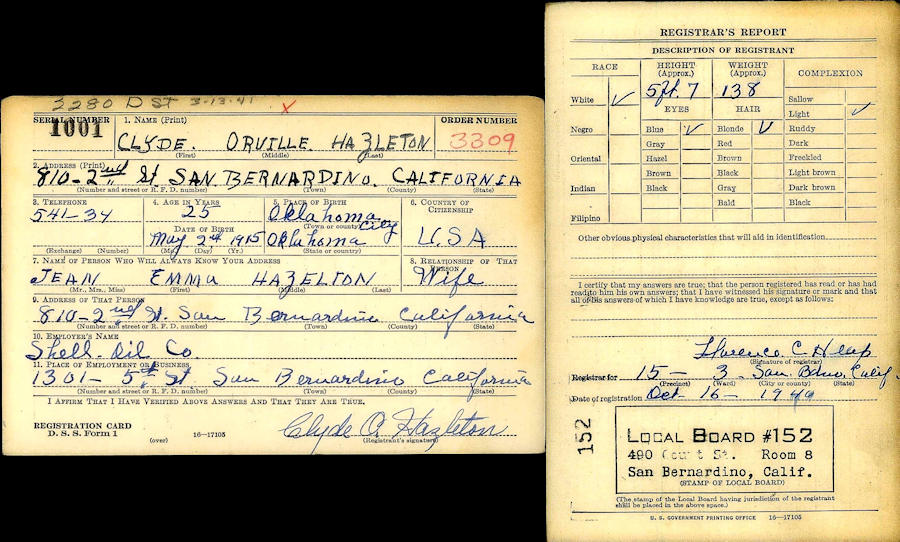 3280 D St 3-13-41 X
SERIAL NUMBER 1. NAME (Print) ORDER NUMBER
1001 CLYDE. ORVILLE. HAZLETON 3309
(First) (Middle) (Last)
2. ADDRESS (Print)
810-2nd St SAN. BERNARDINO. CALIFORNIA
(Number and street or R. F. D. number) (Town) (County) (State)
3. TELEPHONE 4. AGE IN YEARS 5. PLACE OF BIRTH 6. COUNTRY OF CITIZENSHIP
541-34 25 Oklahoma City
(Town or county)
DATE OF BIRTH
May 2nd 1915 Oklahoma U.S.A
(Exchange) (Number) (Mo.) (Day) (Yr.) (State or country)
7. NAME OF PERSON WHO WILL ALWAYS KNOW YOUR ADDRESS 8. RELATIONSHIP OF THAT PERSON
JEAN EMMA HAZELTON Wife
(Mr., Mrs., Miss) (First) (Middle) (Last)
9. ADDRESS OF THAT PERSON
810-2nd St. San Bernardino California
(Number and street or R. F. D. number) (Town) (County) (State)
10. EMPLOYER'S NAME
Shell. Oil Co.
11. PLACE OF EMPLOYMENT OR BUSINESS
1301- 5th St. San Bernardino California
(Number and street or R. F. D. number) (Town) (County) (State)
I AFFIRM THAT I HAVE VERIFIED ABOVE ANSWERS AND THAT THEY ARE TRUE.
REGISTRATION CARD
D. S. S. Form 1 (over) 16—17105 Clyde O Hazleton
(Registrant's signature)
REGISTRAR'S REPORT
DESCRIPTION OF REGISTRANT
RACE HEIGHT (Approx.) WEIGHT (Approx.) COMPLEXION
White ✓ 5ft. 7 138 Sallow
EYES HAIR Light ✓
Negro Blue ✓ Blonde ✓ Ruddy
Gray Red Dark
Oriental Hazel Brown Freckled
Brown Black Light brown
Indian Black Gray Dark brown
Bald Black
Filipino
Other obvious physical characteristics that will aid in identification
I certify that my answers are true; that the person registered has read or has had
read to him his own answers; that I have witnessed his signature or mark and that
all of his answers of which I have knowledge are true, except as follows:
Florence C. Heap
(Signature of registrar)
Registrar for 15- 3- San Bdno, Calif.
(Precinct) (Ward) (City or county) (State)
Date of registration Oct 16- 1940
152
LOCAL BOARD #152
490 Court St. Room 8
San Bernardino, Calif.
(STAMP OF LOCAL BOARD)
(The stamp of the Local Board having jurisdiction of the registrant
shall be placed in the above space.)
U. S. GOVERNMENT PRINTING OFFICE 16—17105